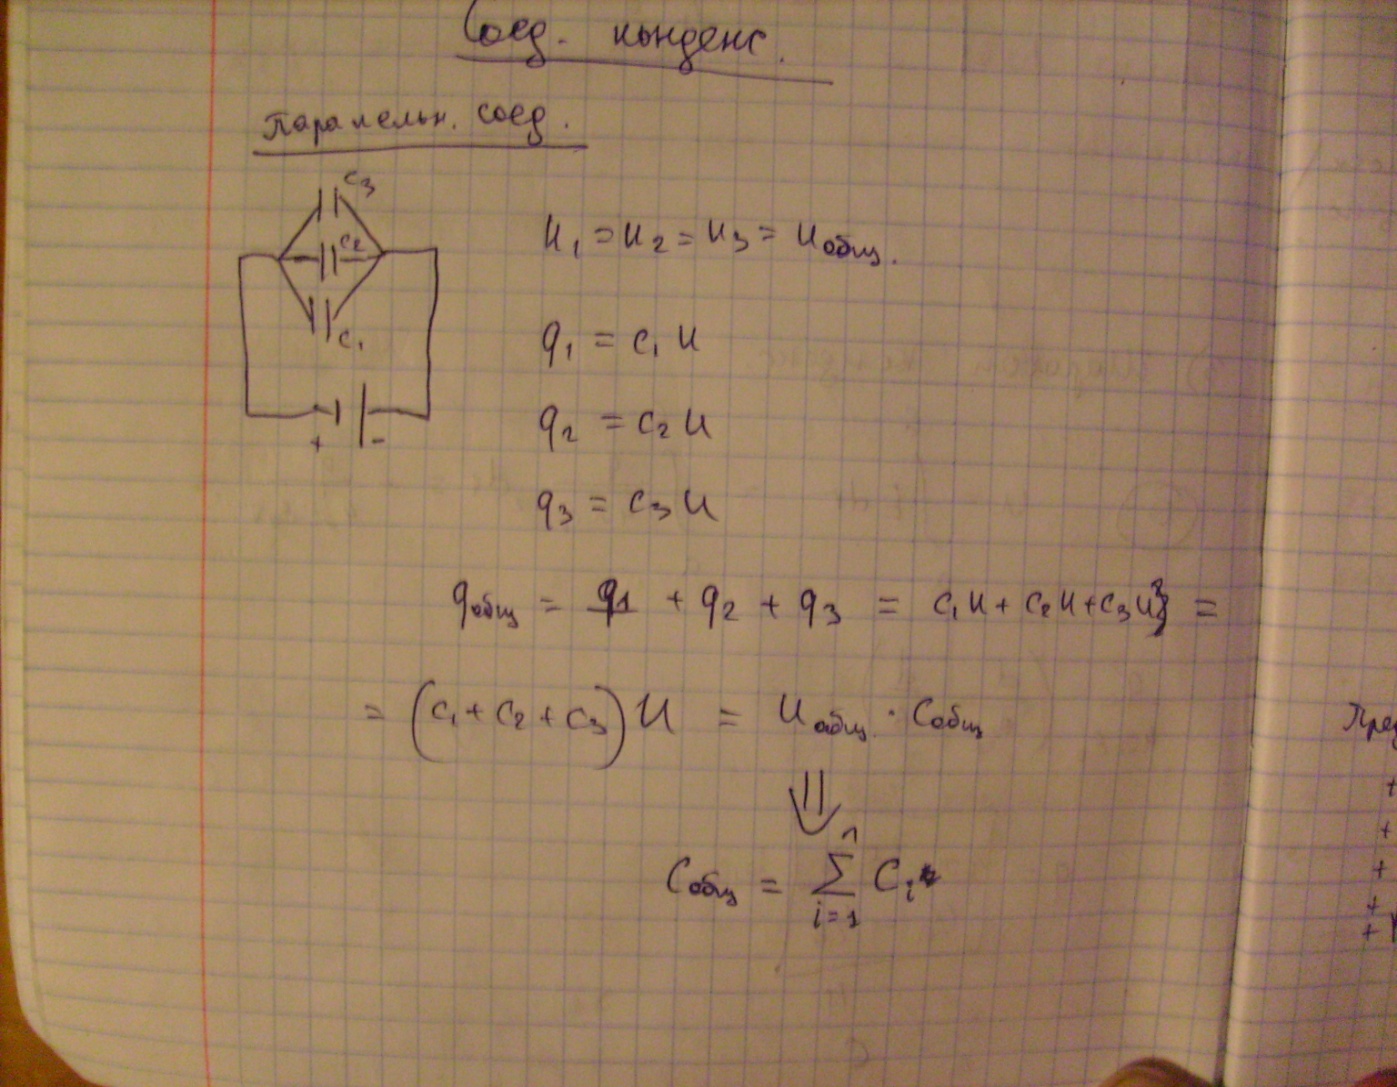 Соед. конденс.
Паралельн. соед.
C3
C2
C1
+ -
U1 = U2 = U3 = Uобщ.
q1 = C1 U
q2 = C2 U
q3 = C3 U
qобщ = q1 + q2 + q3 = C1U + C2U + C3U =
= (C1 + C2 + C3) U = Uобщ. · Cобщ
⇓
Cобщ = Σ i=1 Ci
+
+
+
+
+